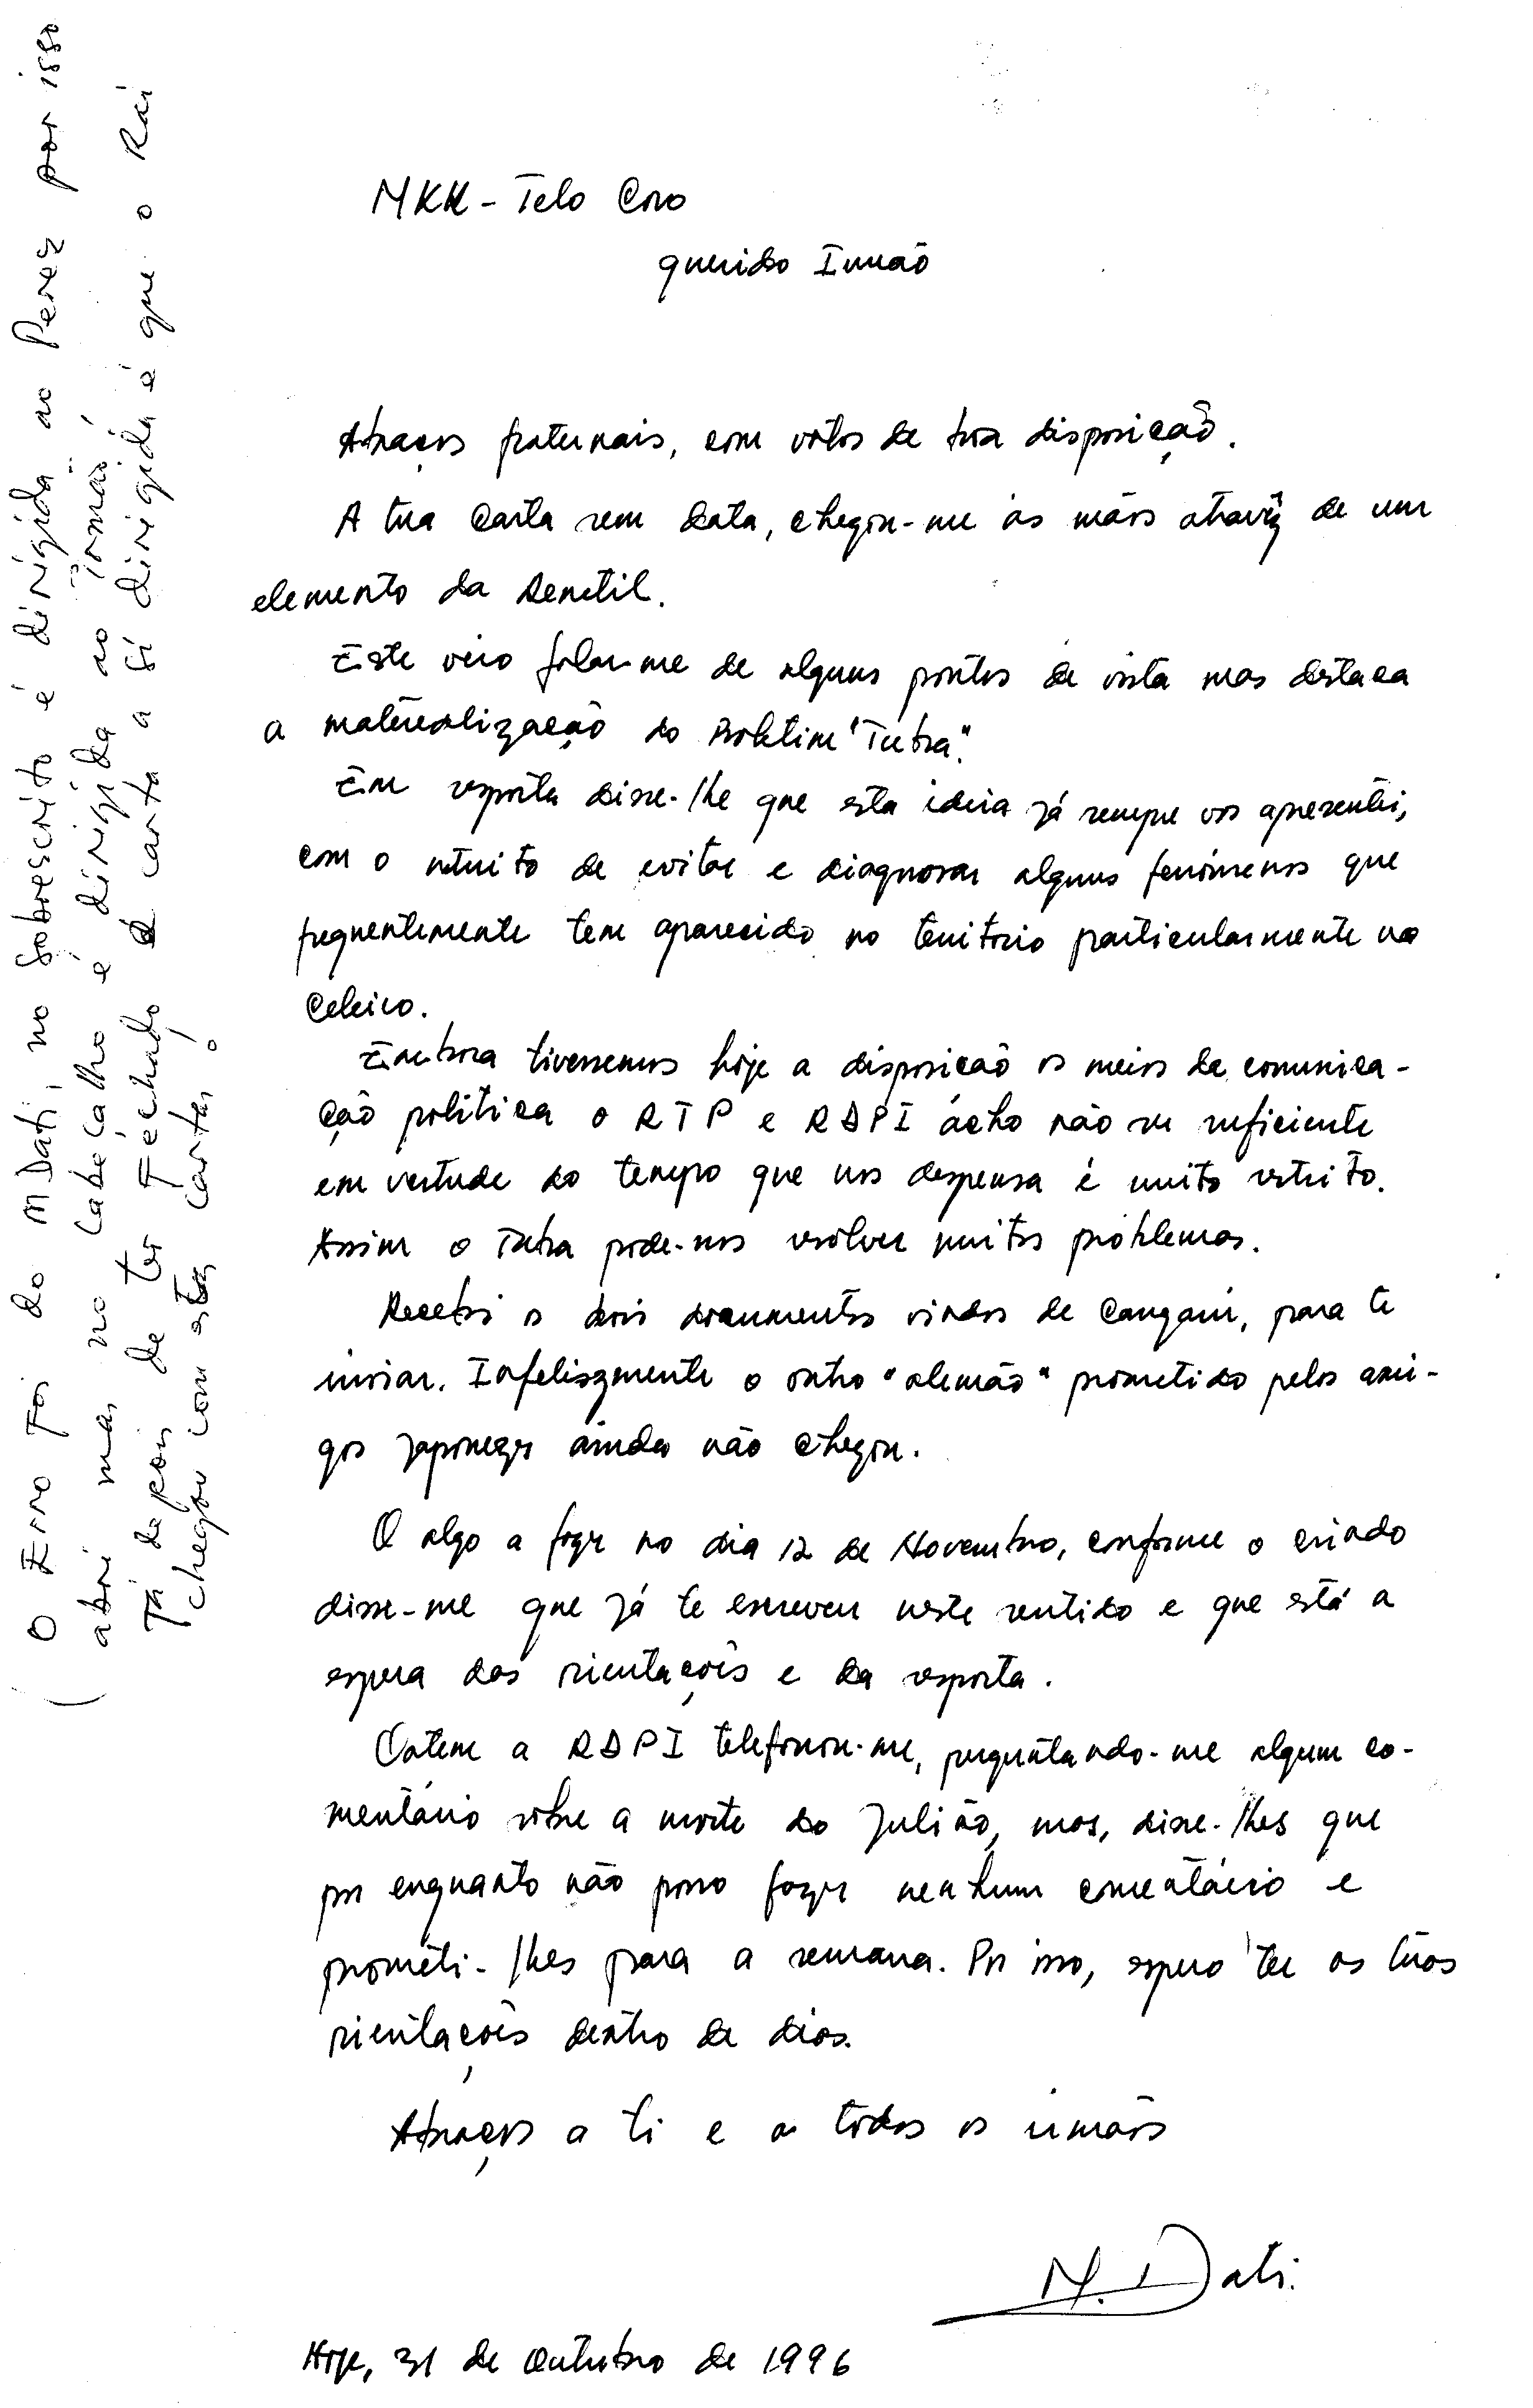 MKK - Telo Cono
querido Irmão
Abraços fraternais, com votos de boa disposição.
A tua carta sem data, chegou-me às mãos através de um
elemento da Renetil.
Este veio falar-me de alguns pontos de vista mas destaca
a materealização do Boletim "Tubra".
Em resposta disse-lhe que esta ideia já sempre vos apresentei,
com o intuito de evitar e diagnosar alguns fenómenos que
frequentemente tem aparecido no território particularmente no
Celeiro.
Embora tivessemos hoje a disposição os meios de comunica-
ção política o RTP e RDPI ácho não se suficiente
em vertude do tempo que nos despensa é muito restrito.
Assim o Tubra pode-nos resolver muitos problemas.
Recebi os dois documentos vindos de Cangam, para te
inviar. Infelismente o outro "alemão" prometido pelos ami-
gos japonezes ainda não chegou.
O algo a fazer no dia 12 de Novembro, conforme o criado
disse-me que já te escreveu neste sentido e que está a
espera das orientações e da resposta.
Ontem a RDPI telefonou-me, perguntando-me algum co-
mentário sobre a morte do Julião, mas, disse-lhes que
por enquanto não posso fazer nenhum comentário e
prometi-lhes para a semana. Por isso, espero ter as tuas
orientações dentro de dias.
Abraços a ti e a todos os irmãos
M. Dati.
Hoje, 31 de Outubro de 1996
(O Erro foi do M Dati, no sobrescrito é dirigida ao Perez por isso
abri mas no cabeçalho é dirigida ao "irmão"
Já depois de ter fechado a carta a si dirigida é que o Rai
chegou com estas cartas.